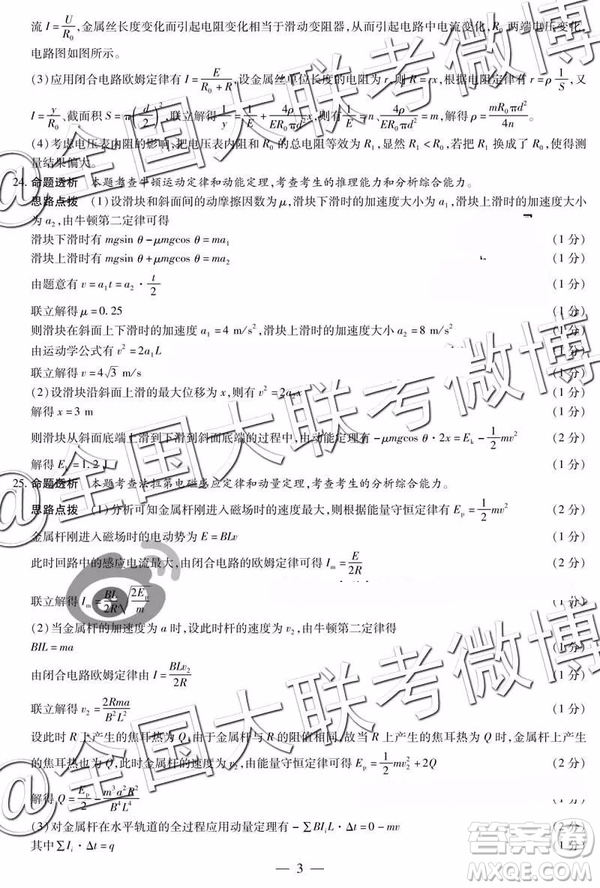 流 I = U/R₀, 金属丝长度变化而引起电阻变化相当于滑动变阻器,从而引起电路中电流变化, R₀ 两端电压变化,
电路图如图所示。
(3) 应用闭合电路欧姆定律有 I = E/(R₀+R), 设金属丝单位长度的电阻为 r, 则 R = rx, 根据电阻定律有 r = ρ 1/S, 又
I = y/R₀, 截面积 S = π(d/2)², 联立解得 1/y = 1/E + 4ρ/(ER₀πd²) x, 则有 n = 4ρ/(ER₀πd²), 解得 ρ = nER₀πd²/4
(4) 考虑电压表内阻的影响, 把电压表内阻等效为 R₁, 显然 R₁ < R₀, 若把 R₁ 换成了 R₀, 使得测
量结果偏大。
24. 命题透析 本题考查牛顿运动定律和动能定理,考查考生的推理能力和分析综合能力。
思路点拨 (1) 设滑块和斜面间的动摩擦因数为 μ, 滑块下滑时的加速度为 a₁, 滑块上滑时的加速度大小
为 a₂, 由牛顿第二定律可得
滑块下滑时有 mgsin θ − μmgcos θ = ma₁ (1 分)
滑块上滑时有 mgsin θ + μmgcos θ = ma₂ (1 分)
由题意有 v = a₁t = a₂ · t/2 (2 分)
联立解得 μ = 0.25 (1 分)
则滑块从斜面上下滑时的加速度 a₁ = 4 m/s², 滑块上滑时的加速度大小 a₂ = 8 m/s² (1 分)
由运动学公式有 v² = 2a₁L (1 分)
联立解得 v = 4√3 m/s (1 分)
(2) 设滑块沿斜面上滑的最大位移为 x, 则有 v² = 2a₂x
解得 x = 3 m (1 分)
则滑块从斜面底端上滑到下滑到斜面底端的过程中, 由动能定理有 −μmgcos θ · 2x = Eₖ − ½mv² (2 分)
解得 Eₖ = 1.2 J (1 分)
25. 命题透析 本题考查法拉第电磁感应定律和动量定理,考查考生的分析综合能力。
思路点拨 (1) 分析可知金属杆刚进入磁场时的速度最大, 则根据能量守恒定律有 Eₚ = ½mv² (2 分)
金属杆刚进入磁场时的电动势为 E = BLv (1 分)
此时回路中的感应电流最大, 由闭合电路的欧姆定律有 Iₘ = E/2R (2 分)
联立解得 Iₘ = BL/2R √(2Eₚ/m) (1 分)
(2) 当金属杆的加速度为 a 时, 设此时杆的速度为 v₂, 由牛顿第二定律得
BIL = ma (1 分)
由闭合电路欧姆定律 I = BLv₂/2R (1 分)
联立解得 v₂ = 2Rma/B²L² (1 分)
设此时 R 上产生的焦耳热为 Q, 由于金属杆与 R 的阻值相同, 故当 R 上产生的焦耳热为 Q 时, 金属杆
上产生的焦耳热也为 Q, 此时金属杆的速度为 v₂, 由能量守恒定律可得 Eₚ = ½mv₂² + 2Q (2 分)
解得 Q = Eₚ/2 − m³a²R²/B⁴L⁴ (1 分)
(3) 对金属杆在水平轨道的全过程应用动量定理有 −∑BIᵢL · Δt = 0 − mv (2 分)
其中 ∑Iᵢ · Δt = q (1 分)
— 3 —
@全国大联考微博
@全国大联考微博
@全国大联考微博
答案圈
MXQE.COM